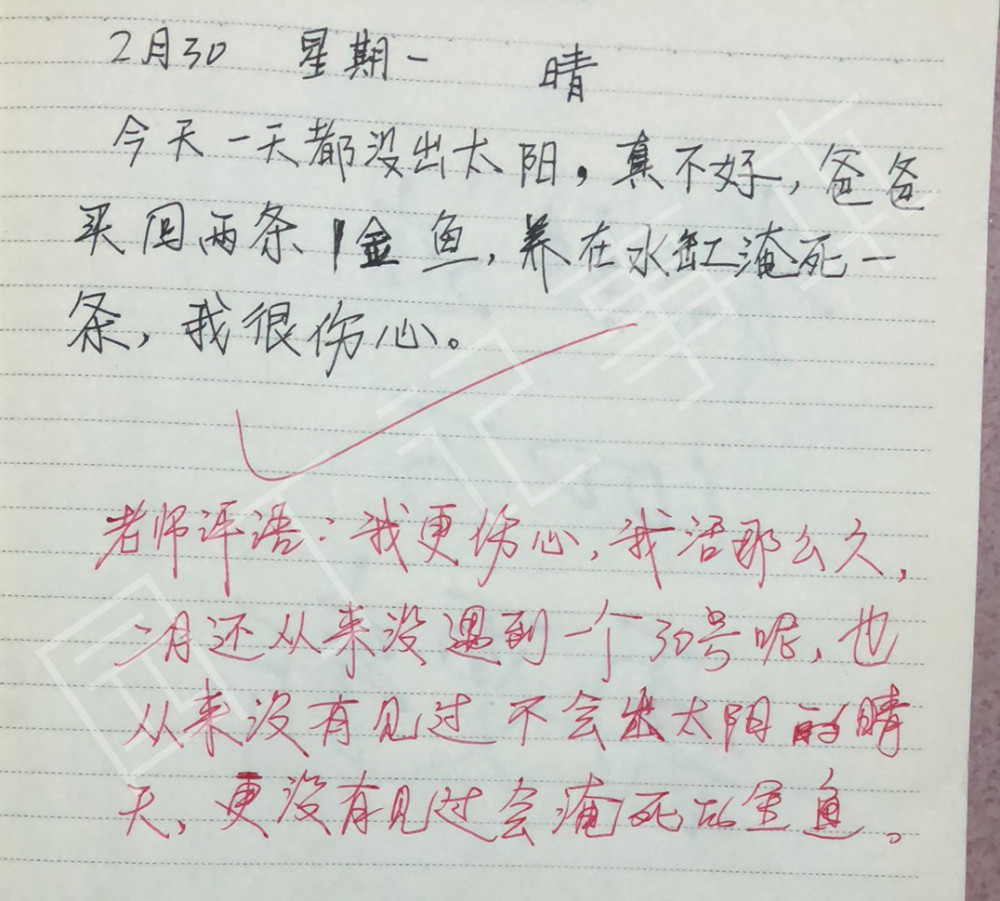 2月30 星期一 晴
今天一天都没出太阳，真不好，爸爸
买回两条金鱼，养在水缸淹死一
条，我很伤心。
老师评语：我更伤心，我活那么久，
二月还从来没遇到一个30号呢，也
从来没有见过不会出太阳的晴
天，更没有见过会淹死的金鱼。
园丁记事本